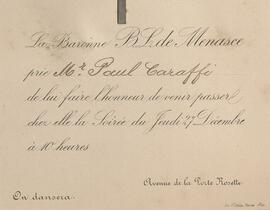 La Baronne B. L. de Menasce
prie Mr. Paul Caraffi
de lui faire l'honneur de venir passer
chez elle la Soirée du Jeudi 27 Décembre
à 10 heures
Avenue de la Porte Rosette
On dansera